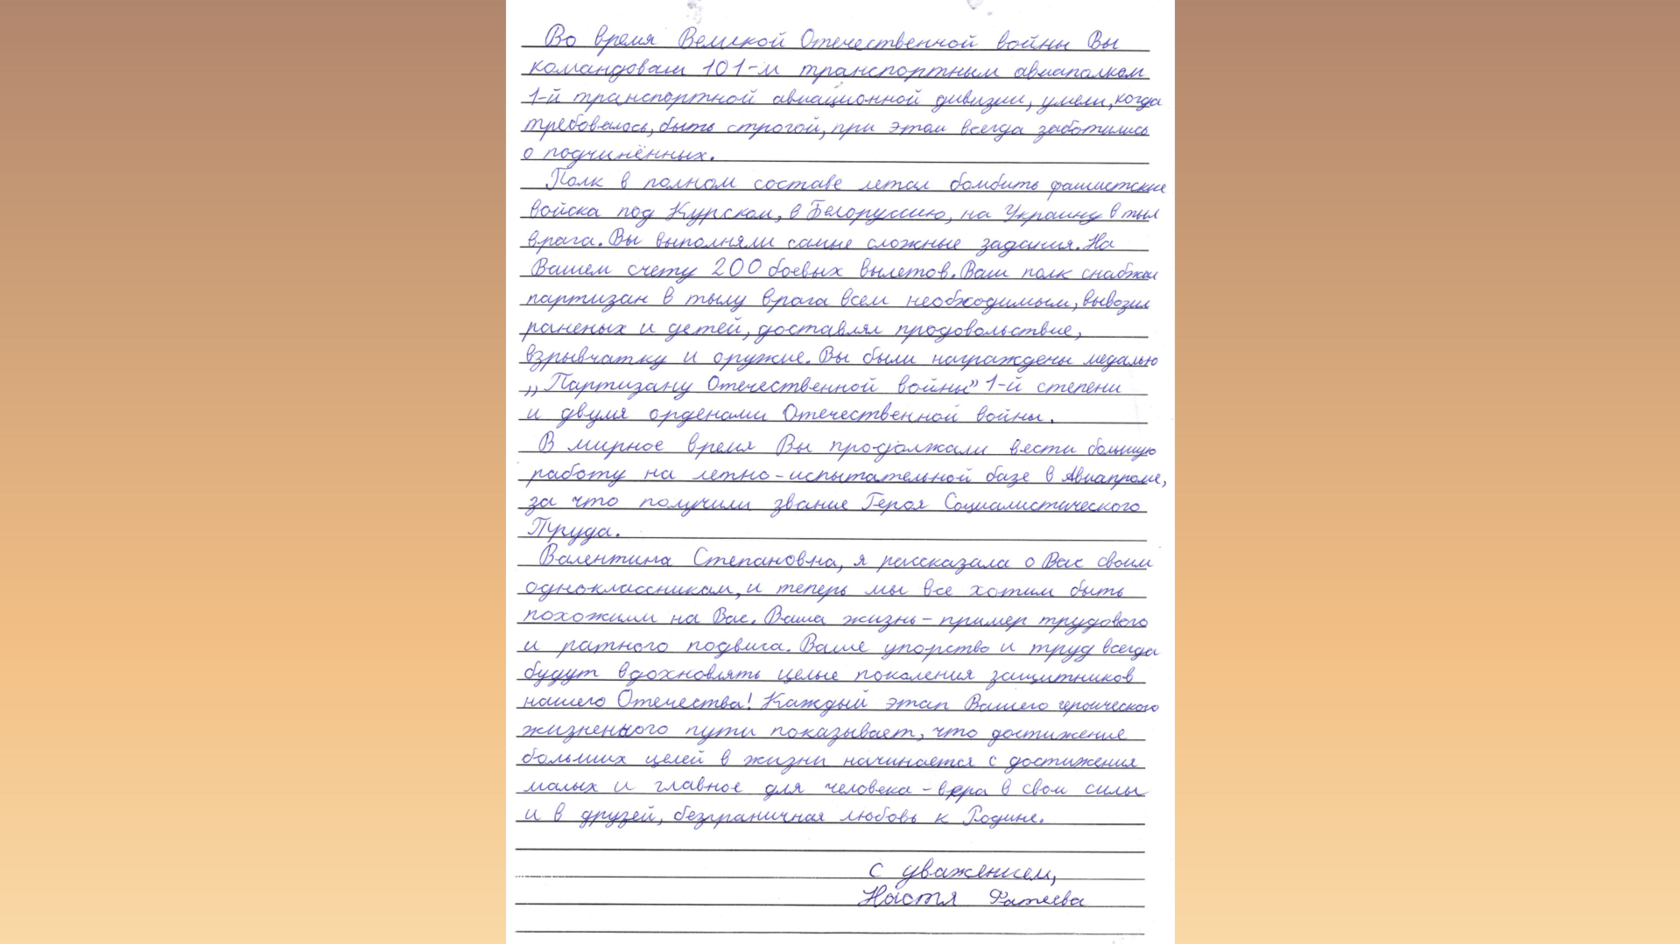 Во время Великой Отечественной войны Вы
командовали 101-м транспортным авиаполком
1-й транспортной авиационной дивизии, умели, когда
требовалось, быть строгой, при этом всегда заботились
о подчинённых.
Полк в полном составе летал бомбить фашистские
войска под Курском, в Белоруссию, на Украину в тыл
врага. Вы выполняли самые сложные задания. На
Вашем счету 200 боевых вылетов. Ваш полк снабжал
партизан в тылу врага всем необходимым, вывозил
раненых и детей, доставлял продовольствие,
взрывчатку и оружие. Вы были награждены медалью
„Партизану Отечественной войны” 1-й степени
и двумя орденами Отечественной войны.
В мирное время Вы продолжали вести большую
работу на летно-испытательной базе в Авиапроме,
за что получили звание Героя Социалистического
Труда.
Валентина Степановна, я рассказала о Вас своим
одноклассникам, и теперь мы все хотим быть
похожими на Вас. Ваша жизнь - пример трудового
и ратного подвига. Ваше упорство и труд всегда
будут вдохновлять целые поколения защитников
нашего Отечества! Каждый этап Вашего героического
жизненного пути показывает, что достижение
больших целей в жизни начинается с достижения
малых и главное для человека - вера в свои силы
и в друзей, безграничная любовь к Родине.
С уважением,
Настя Фатеева